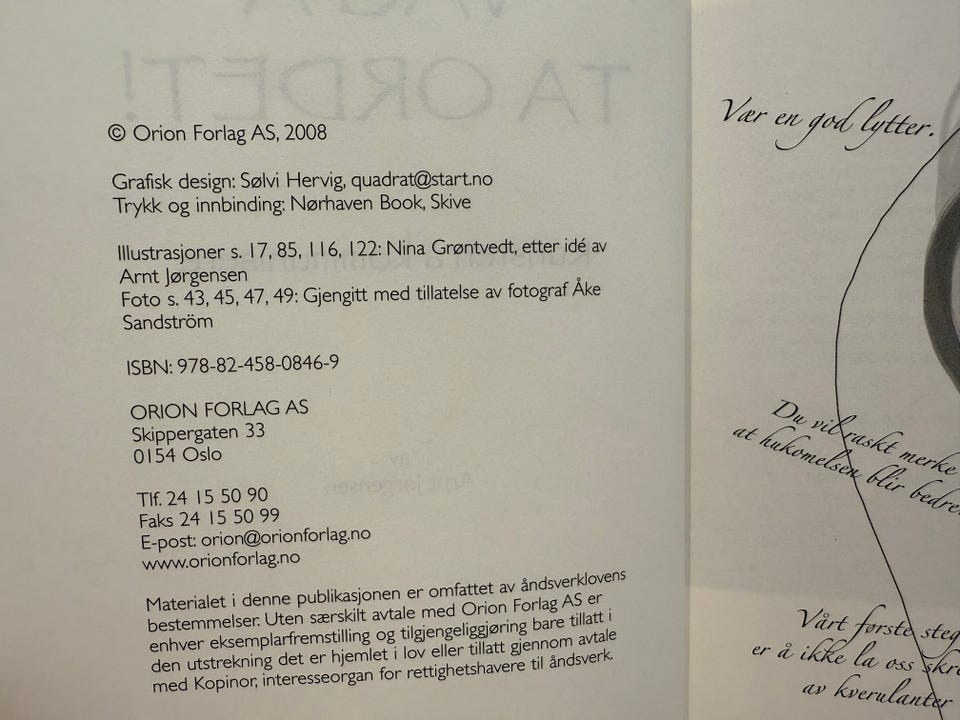 © Orion Forlag AS, 2008
Grafisk design: Sølvi Hervig, quadrat@start.no
Trykk og innbinding: Nørhaven Book, Skive
Illustrasjoner s. 17, 85, 116, 122: Nina Grøntvedt, etter idé av
Arnt Jørgensen
Foto s. 43, 45, 47, 49: Gjengitt med tillatelse av fotograf Åke
Sandström
ISBN: 978-82-458-0846-9
ORION FORLAG AS
Skippergaten 33
0154 Oslo
Tlf. 24 15 50 90
Faks 24 15 50 99
E-post: orion@orionforlag.no
www.orionforlag.no
Materialet i denne publikasjonen er omfattet av åndsverklovens
bestemmelser. Uten særskilt avtale med Orion Forlag AS er
enhver eksemplarfremstilling og tilgjengeliggjøring bare tillatt i
den utstrekning det er hjemlet i lov eller tillatt gjennom avtale
med Kopinor, interesseorgan for rettighetshavere til åndsverk.
Vær en god lytter.
Du vil raskt merke
at hukomelsen blir bedre
Vårt første steg
er å ikke la oss
av kverulanter